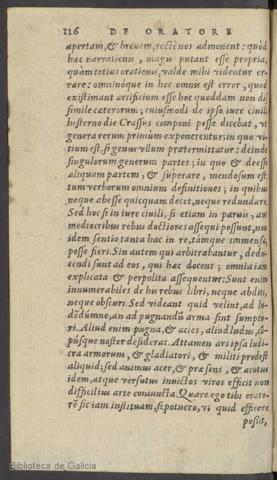 116 DE ORATORE
apertam, & breuem, rectè nos admonent: quòd
hæc narrationis, magis putant esse propria,
quàm totius orationis, valde mihi videntur er-
rare: omninòque in hoc omnis est error, quòd
existimant artificium esse hoc quoddam non di-
simile cæterorum; cuiusmodi de ipso iure ciuili
hesterno die Crassus componi posse dicebat, vt
genera rerum primùm exponerentur; in quo vi-
tium est, si genus vllum prætermittatur: deinde
singulorum generum partes; in quo & deesse
aliquam partem, & superare, mendosum est:
tum verborum omnium definitiones; in quibus
neque abesse quicquam decet, neque redundare.
Sed hoc si in iure ciuili, si etiam in paruis, aut
mediocribus rebus doctiores assequi possunt, non
idem sentio tanta hac in re, támque immensa,
posse fieri. Sin autem qui arbitrabantur, dedu-
cendi sunt ad eos, qui hæc docent; omnia iam
explicata & perpolita assequentur: Sunt enim
innumerabiles de his rebus libri, neque abditi,
neque obscuri. Sed videant quid velint, ad lu-
dendúmne, an ad pugnandũ arma sint sumptu-
ri. Aliud enim pugna, & acies, aliud ludus, cã-
púsque noster desiderat. Attamen ars ipsa ludi-
cra armorum, & gladiatori, & militi prodest
aliquid; sed animus acer, & præsens, & acutus
idem, atque versutus inuictos viros efficit non
difficilius arte coniuncta. Quare ego tibi orato-
rẽ sic iam instituam, si potuero, vt quid efficere
possit,
Biblioteca de Galicia